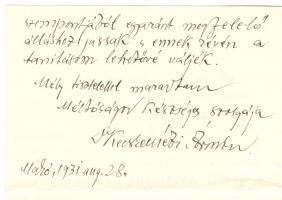 szempontjából egyaránt megfelelő
álláshoz jussak s ennek révén a
tanításom lehetővé váljék.
Mély tisztelettel maradtam
Méltóságod készséges szolgája
Dr Kecskeméti Ármin
Makó, 1931 aug. 28.